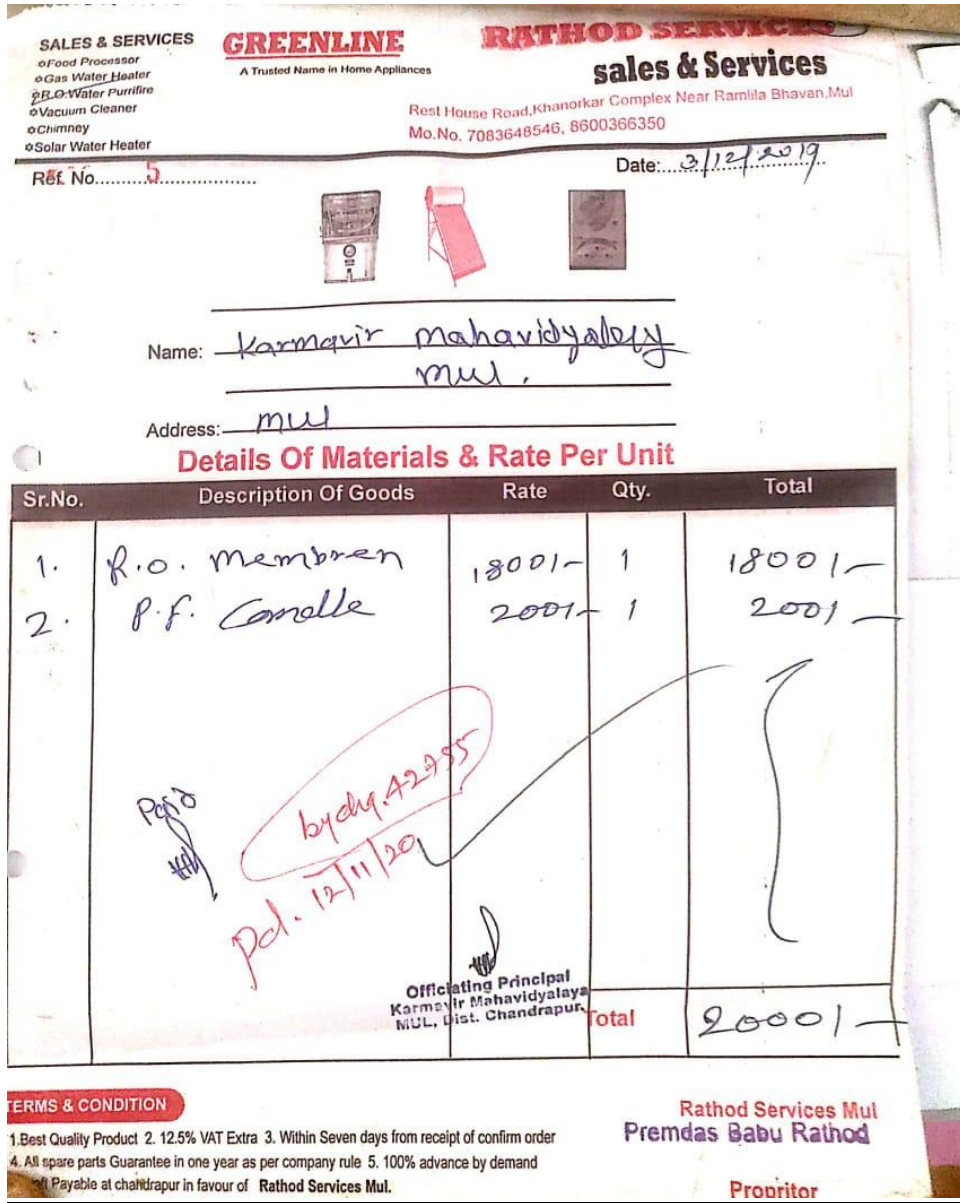 SALES & SERVICES
Food Processor
Gas Water Heater
R.O.Water Purrifire
Vacuum Cleaner
Chimney
Solar Water Heater
GREENLINE
A Trusted Name in Home Appliances
RATHOD SERVICES
sales & Services
Rest House Road,Khanorkar Complex Near Ramlila Bhavan,Mul
Mo.No. 7083648546, 8600366350
Ref. No..........5..................
Date:....3/12/2019.
Name: Karmavir Mahavidyalay
Mul.
Address: Mul
Details Of Materials & Rate Per Unit
Sr.No. Description Of Goods Rate Qty. Total
1. R.O. Membren 1800/- 1 1800/-
2. P.f. 200/- 1 200/-
Paid
by chq. 42755
Pd. 12/11/20
Officiating Principal
Karmavir Mahavidyalaya
MUL, Dist. Chandrapur.
Total 2000/-
TERMS & CONDITION
1.Best Quality Product 2. 12.5% VAT Extra 3. Within Seven days from receipt of confirm order
4. All spare parts Guarantee in one year as per company rule 5. 100% advance by demand
Payable at chahdrapur in favour of Rathod Services Mul.
Rathod Services Mul
Premdas Babu Rathod
Propritor